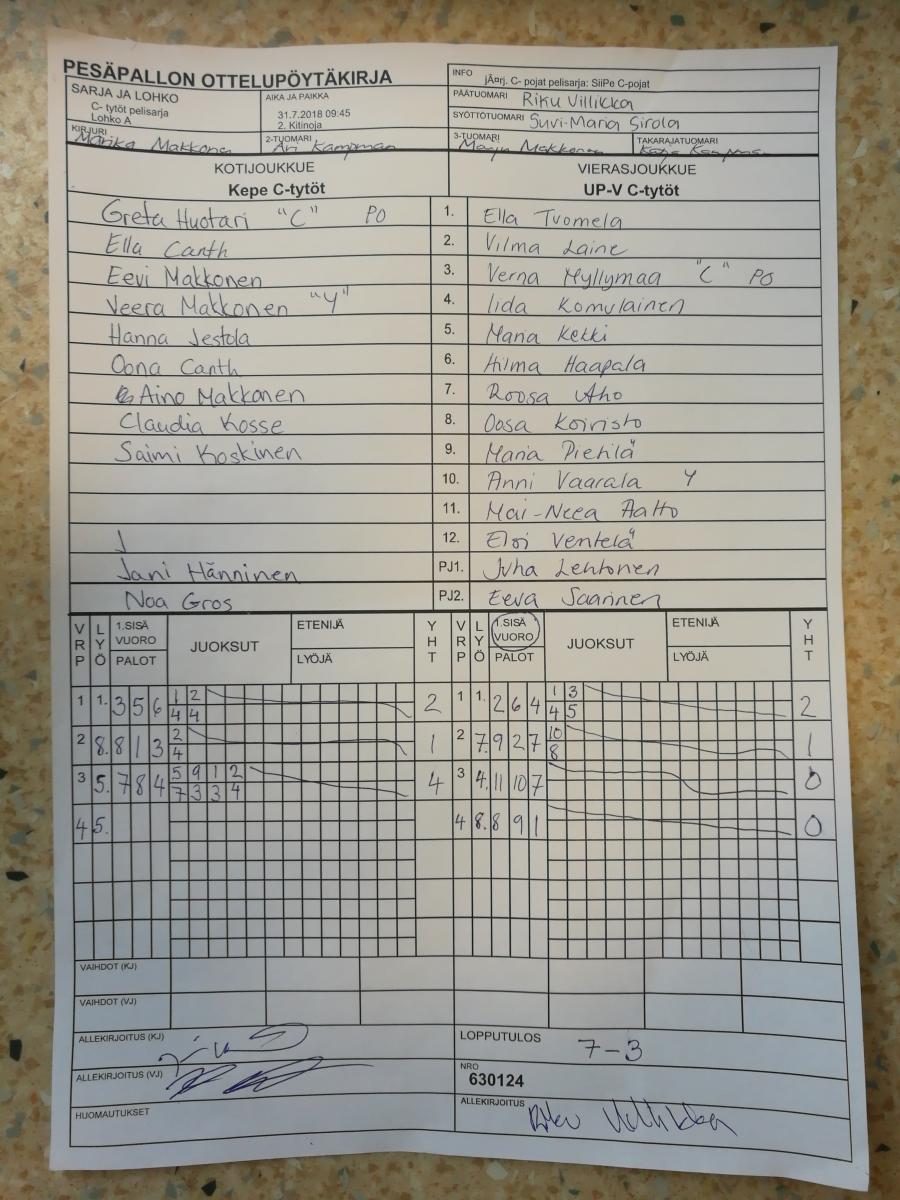 PESÄPALLON OTTELUPÖYTÄKIRJA
SARJA JA LOHKO
C- tytöt pelisarja
Lohko A
AIKA JA PAIKKA
31.7.2018 09:45
2. Kitinoja
INFO
jÃ¤rj. C- pojat pelisarja: SiiPe C-pojat
PÄÄTUOMARI Riku Villikka
SYÖTTÖTUOMARI Suvi-Maria Sirola
KIRJURI
Marika Makkonen
2-TUOMARI
Ari Kampman
3-TUOMARI
Makkonen
TAKARAJATUOMARI
KOTIJOUKKUE
Kepe C-tytöt
VIERASJOUKKUE
UP-V C-tytöt
Greta Huotari "C" PO 1. Ella Tuomela
Ella Canth 2. Vilma Laine
Eevi Makkonen 3. Verna Myllymaa "C" PO
Veera Makkonen "Y" 4. Iida Komulainen
Hanna Jestola 5. Maria Ketki
Oona Canth 6. Hilma Haapala
Aino Makkonen 7. Roosa Aho
Claudia Kosse 8. Oosa Koivisto
Saimi Koskinen 9. Maria Pietilä
10. Anni Vaarala Y
11. Mai-Neea Aalto
J 12. Elsi Ventelä
Jani Hänninen PJ1. Juha Lehtonen
Noa Gros PJ2. Eeva Saarinen
VRP LYÖ 1.SISÄ VUORO PALOT JUOKSUT ETENIJÄ LYÖJÄ YHT VRP LYÖ 1.SISÄ VUORO PALOT JUOKSUT ETENIJÄ LYÖJÄ YHT
1 1. 3 5 6 1 2 2 1 1. 2 6 4 1 3 2
4 4 4 5
2 8. 8 1 3 2 1 2 7. 9 2 7 10 1
4 8
3 5. 7 8 4 5 9 1 2 4 3 4. 11 10 7 0
7 3 3 4
4 5. 4 8. 8 9 1 0
VAIHDOT (KJ)
VAIHDOT (VJ)
ALLEKIRJOITUS (KJ)
LOPPUTULOS 7-3
ALLEKIRJOITUS (VJ)
NRO
630124
HUOMAUTUKSET
ALLEKIRJOITUS Riku Villikka